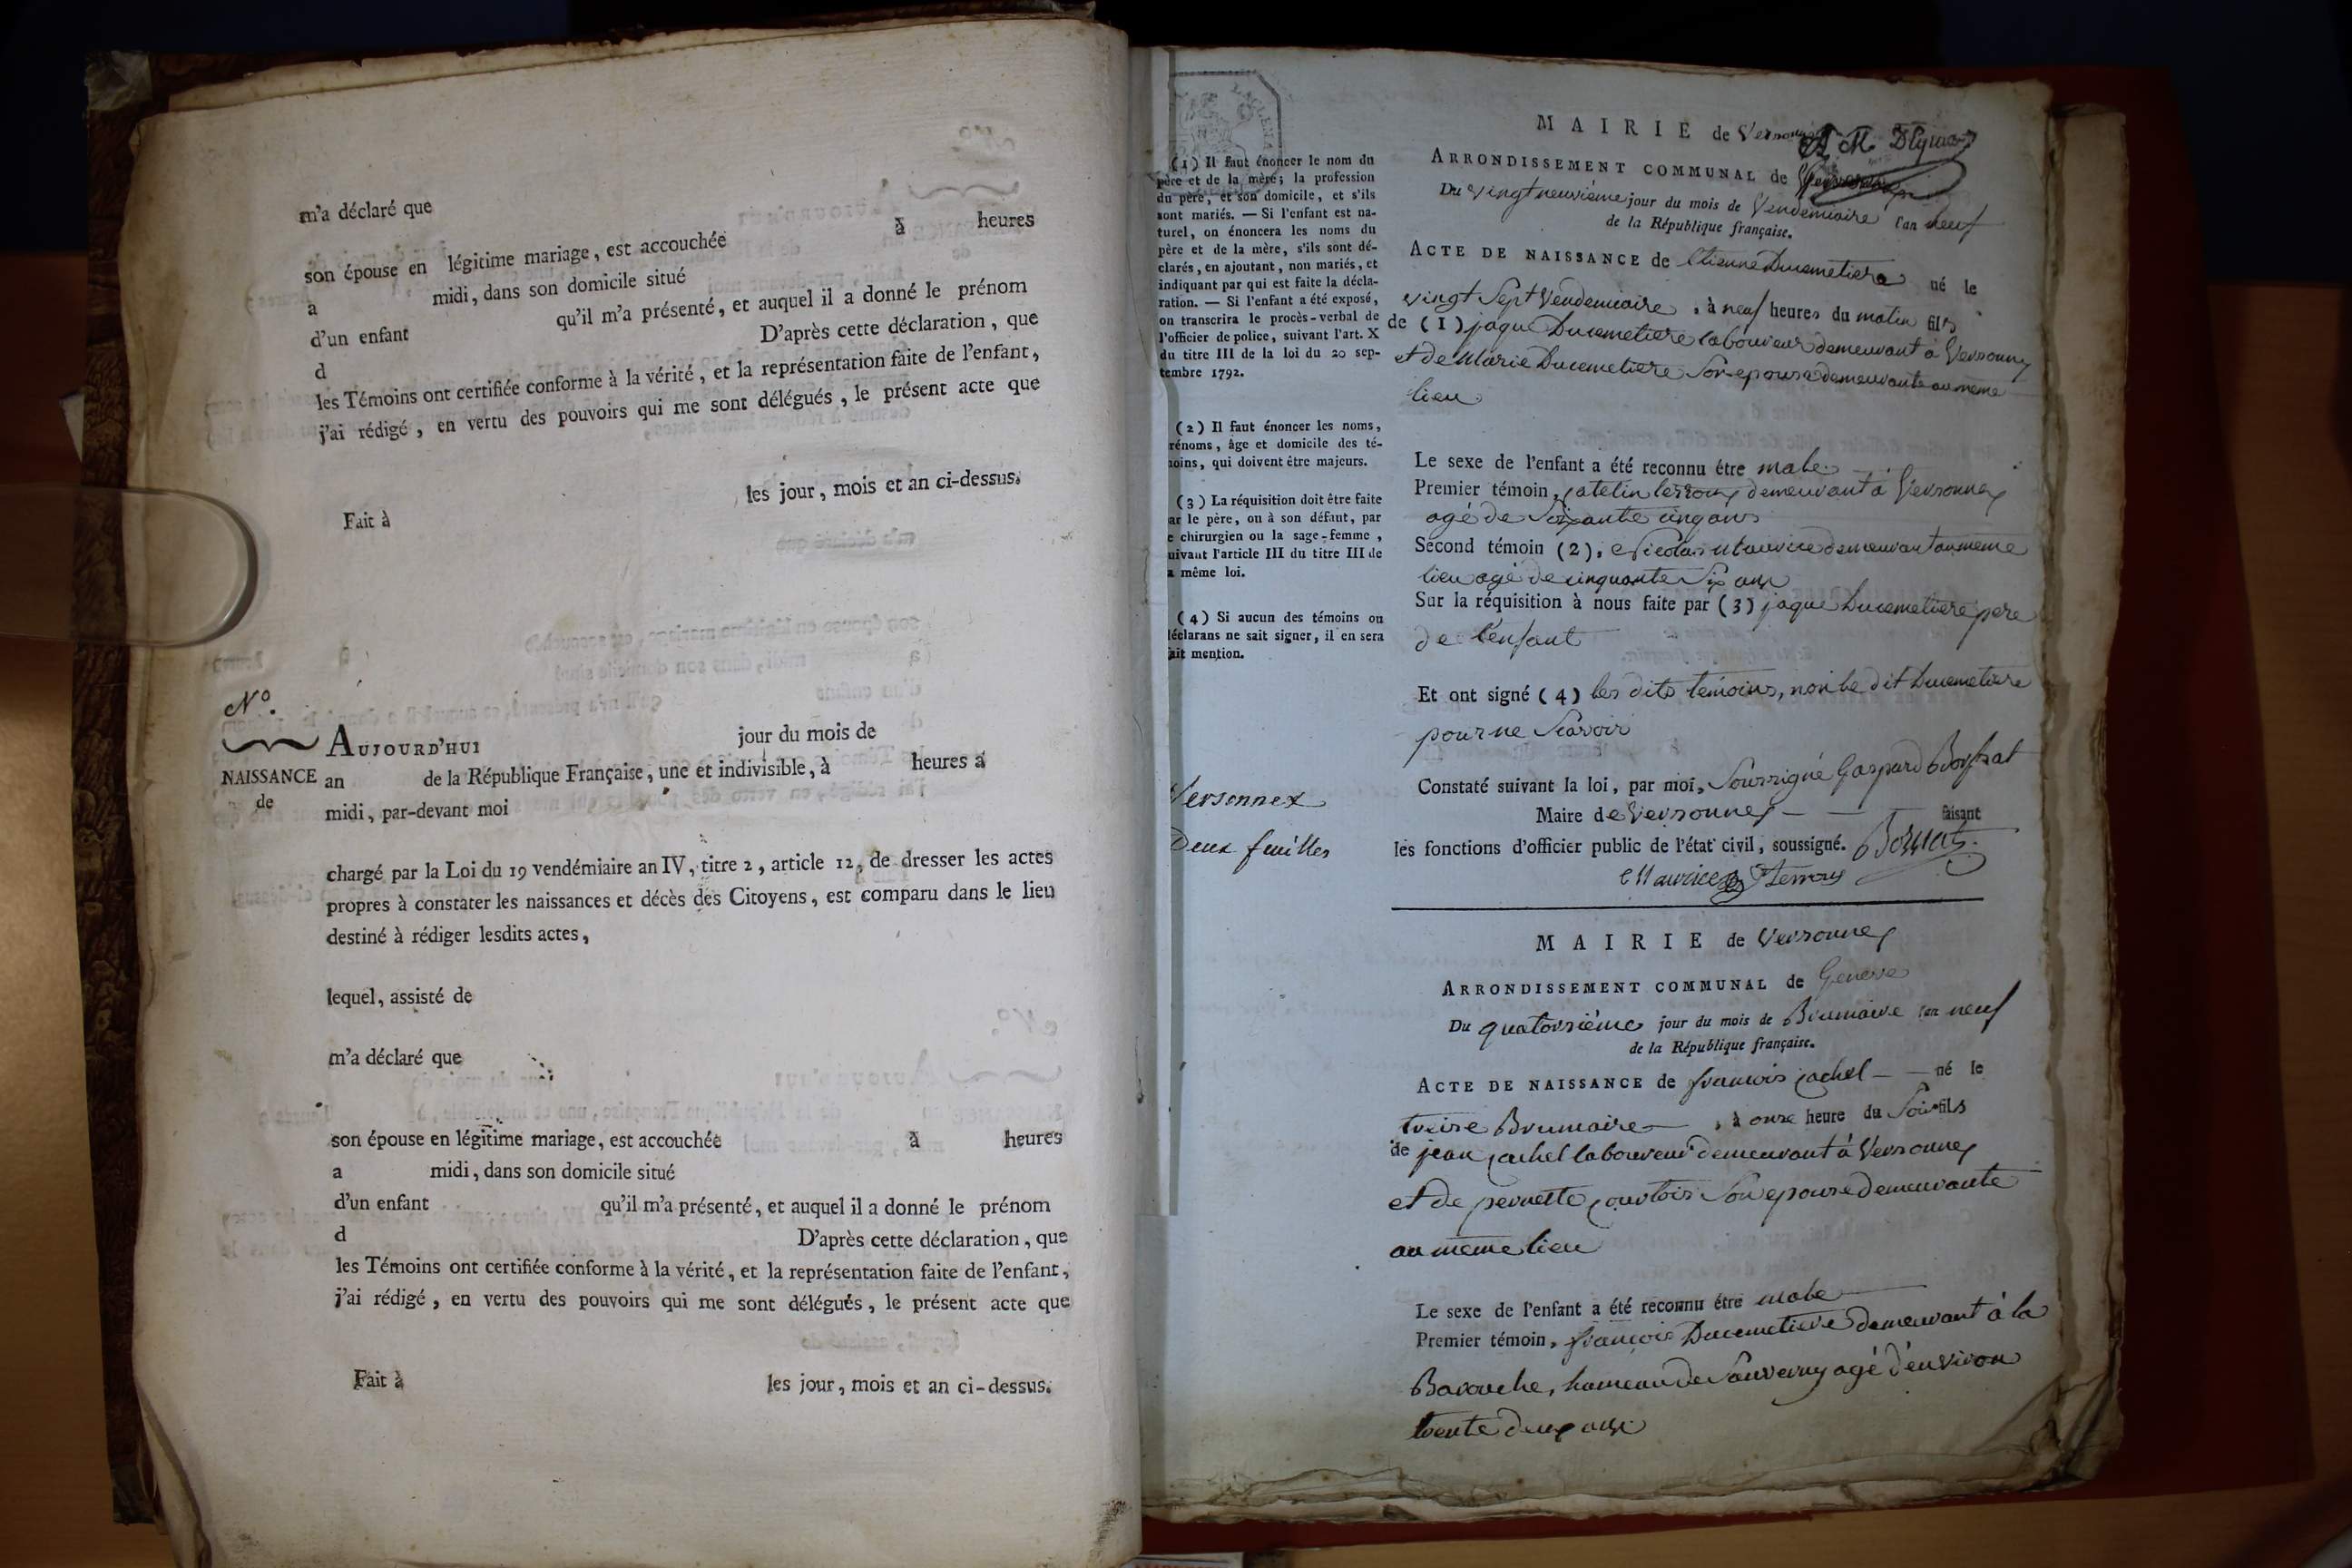 m'a déclaré que
son épouse en légitime mariage, est accouchée à heures
a midi, dans son domicile situé
d'un enfant qu'il m'a présenté, et auquel il a donné le prénom
d D'après cette déclaration, que
les Témoins ont certifiée conforme à la vérité, et la représentation faite de l'enfant,
j'ai rédigé, en vertu des pouvoirs qui me sont délégués, le présent acte que
les jour, mois et an ci-dessus.
Fait à
N°.
AUJOURD'HUI jour du mois de
NAISSANCE an de la République Française, une et indivisible, à heures a
de
midi, par-devant moi
chargé par la Loi du 19 vendémiaire an IV, titre 2, article 12, de dresser les actes
propres à constater les naissances et décès des Citoyens, est comparu dans le lieu
destiné à rédiger lesdits actes,
lequel, assisté de
m'a déclaré que
son épouse en légitime mariage, est accouchée à heures
a midi, dans son domicile situé
d'un enfant qu'il m'a présenté, et auquel il a donné le prénom
d D'après cette déclaration, que
les Témoins ont certifiée conforme à la vérité, et la représentation faite de l'enfant,
j'ai rédigé, en vertu des pouvoirs qui me sont délégués, le présent acte que
Fait à les jour, mois et an ci-dessus.
(1) Il faut énoncer le nom du
père et de la mère; la profession
du père, et son domicile, et s'ils
sont mariés. — Si l'enfant est na-
turel, on énoncera les noms du
père et de la mère, s'ils sont dé-
clarés, en ajoutant, non mariés, et
indiquant par qui est faite la décla-
ration. — Si l'enfant a été exposé,
on transcrira le procès-verbal de
l'officier de police, suivant l'art. X
du titre III de la loi du 20 sep-
tembre 1792.
(2) Il faut énoncer les noms,
rénoms, âge et domicile des té-
moins, qui doivent être majeurs.
(3) La réquisition doit être faite
par le père, ou à son défaut, par
le chirurgien ou la sage-femme,
uivant l'article III du titre III de
a même loi.
(4) Si aucun des témoins ou
déclarans ne sait signer, il en sera
fait mention.
Versonnex
Deux feuilles
MAIRIE de
ARRONDISSEMENT COMMUNAL de
Du vingt neuvième jour du mois de Vendemiaire l'an neuf
de la République française.
ACTE DE NAISSANCE de Etienne Ducemetiere né le
vingt Sept Vendemiaire, à neuf heures du matin fils
de (1) jaque Ducemetiere laboureur demeurant à Versonnex
et de Marie Ducemetiere Son epouse demeurante au meme
lieu
Le sexe de l'enfant a été reconnu être male
Premier témoin, demeurant à Versonnex
agé de Soixante cinq ans
Second témoin (2), Nicolas Mauvice demeurant au meme
lieu agé de cinquante Six ans
Sur la réquisition à nous faite par (3) jaque Ducemetiere pere
de l'enfant
Et ont signé (4) les dits temoins, non le dit Ducemetiere
pour ne Scavoir
Constaté suivant la loi, par moi, Soussigné Gaspard
Maire de Versonnex — — faisant
les fonctions d'officier public de l'état civil, soussigné.
Maurice
MAIRIE de Versonnex
ARRONDISSEMENT COMMUNAL de Geneve
Du quatorsième jour du mois de Brumaire l'an neuf
de la République française.
ACTE DE NAISSANCE de francois jachel — — né le
treise Brumaire —, à onse heure du Soir fils
de jean jachel laboureur demeurant à Versonnex
et de pernette courtois Son epouse demeurante
au meme lieu
Le sexe de l'enfant a été reconnu être male
Premier témoin, françois Ducemetiere demeurant à la
Barouche, hameau de Sauverny agé d'environ
trente deux ans